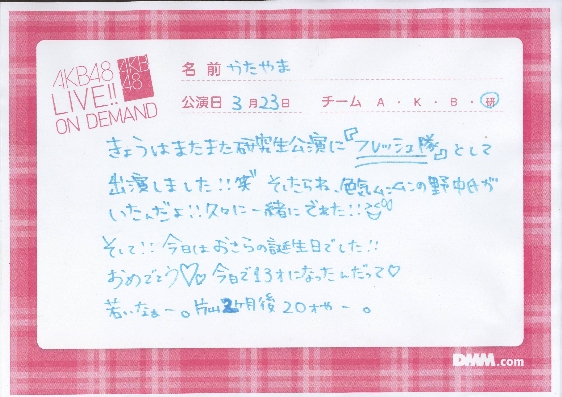 AKB48
LIVE!!
ON DEMAND
AKB
48
名前 かたやま
公演日 3月23日 チーム A・K・B・研
きょうはまたまた研究生公演に『フレッシュ隊』として
出演しました!!笑 そしたらね、色気ムンムンの野中氏が
いたんだよ!!久々に一緒にでれた!!
そして!!今日はおさらの誕生日でした!!
おめでとう♡♡ 今日で13才になったんだって♡
若いなぁー。片山2ヶ月後20才やー。
DMM.com